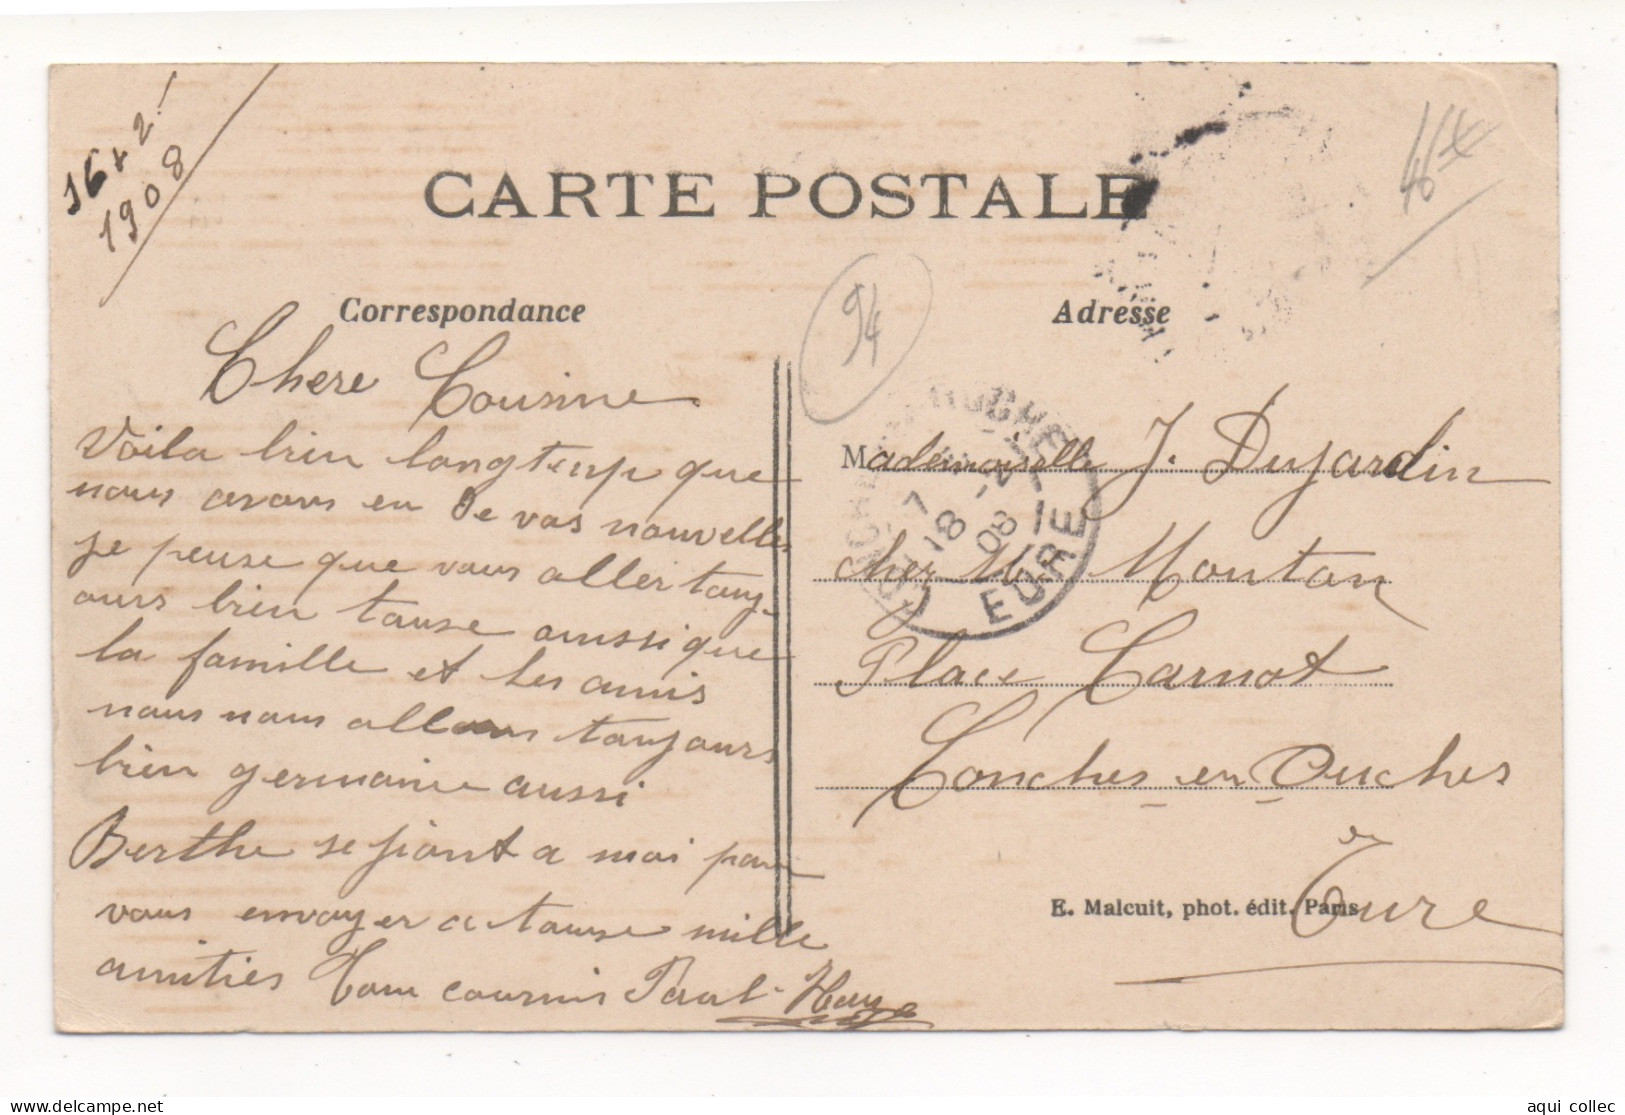 16 x 2!
1908
CARTE POSTALE
46
94
Correspondance
Adresse
Chere Cousine
Voila bien longtemp que
nous avons eu De vos nouvelles
je pense que vous aller touj-
ours bien touse aussi que
la famille et les amis
nous nous allons toujours
bien germaine aussi
Berthe se joint a moi pour
vous envoyer a touse mille
amities
cousins Paul Hay
Mademoiselle J. Dujardin
cher Mr Mouton
Place Carnot
Conches-en-Ouches
Eure
CONCHES
18 -2
08
EURE
E. Malcuit, phot. édit. Paris
aqui collec